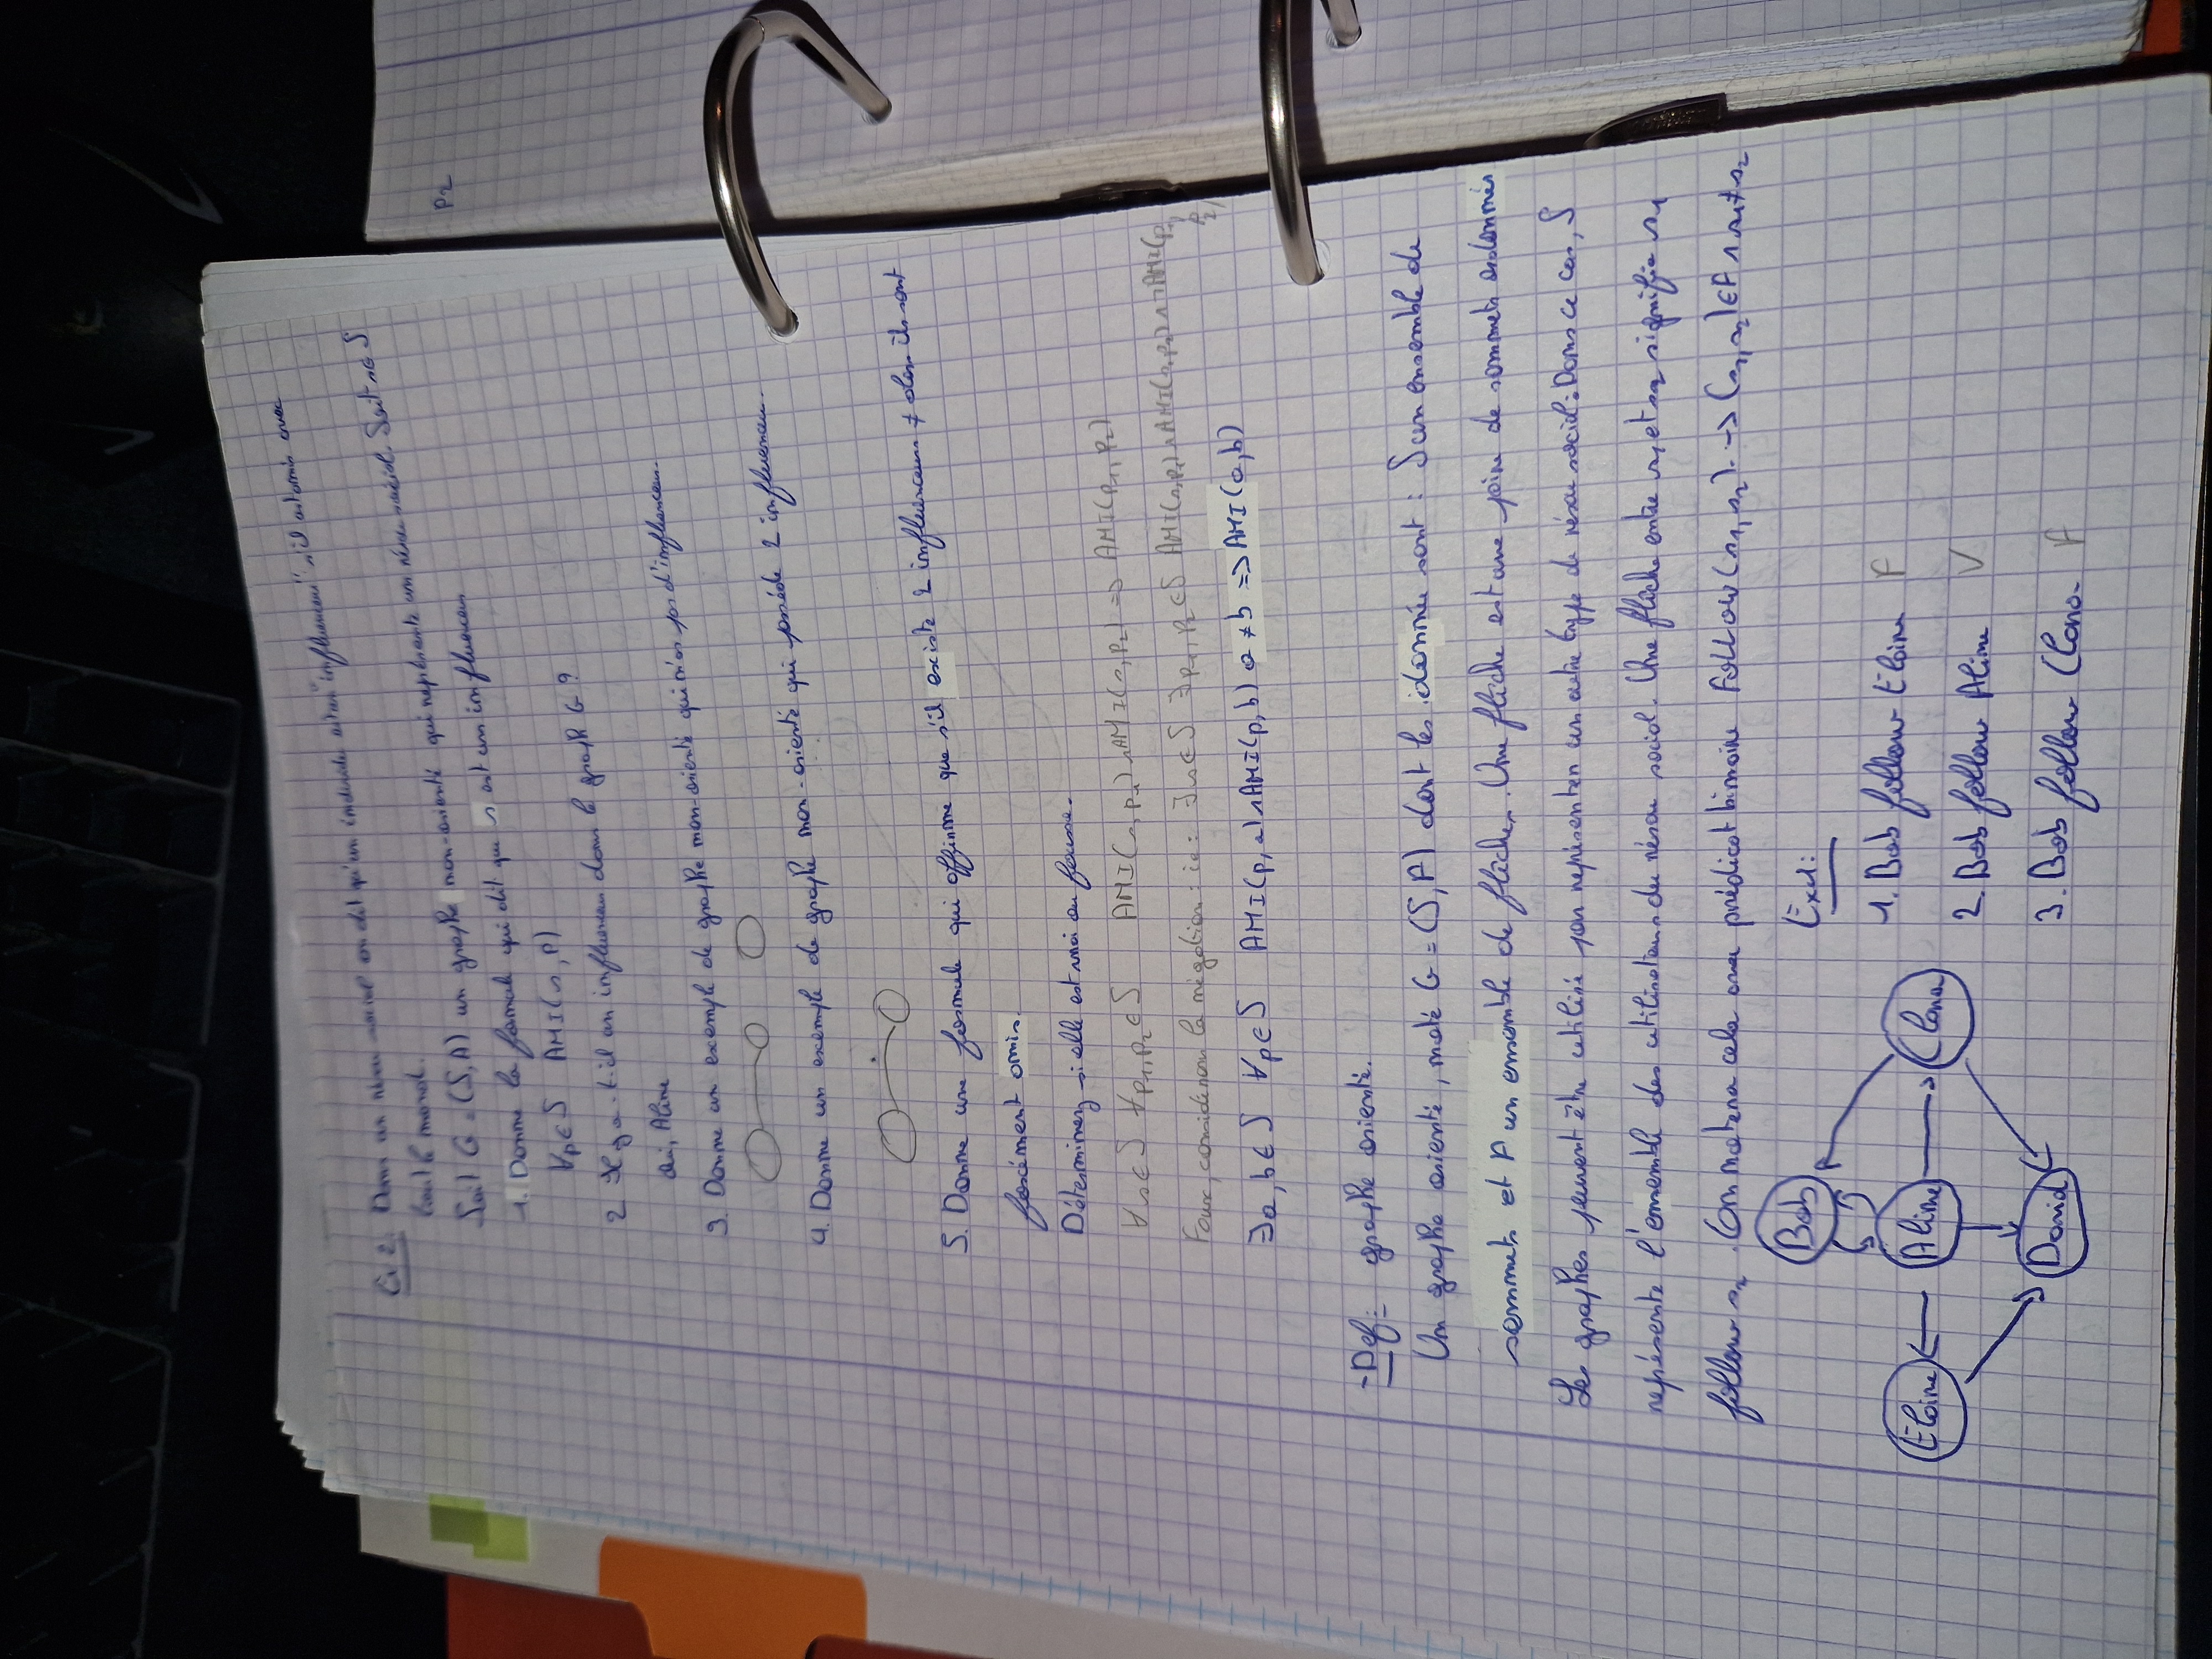 Ex 2: Dans un réseau social on dit qu'un individu est un "influenceur" s'il est amis avec
tout le monde.
Soit G = (S, A) un graphe non-orienté qui représente un réseau social. Soit s ∈ S
1. Donne la formule qui dit que s est un influenceur
∀p ∈ S AMI(s, p)
2 Il y a-t-il un influenceur dans le graph G ?
Oui, Aline
3. Donne un exemple de graphe non-orienté qui n'as pas d'influenceur.
4. Donne un exemple de graphe non-orienté qui possède 2 influenceur.
5. Donne une formule qui affirme que s'il existe 2 influenceurs ≠ alors ils sont
forcément amis.
Déterminez si elle est vrai ou fausse.
∀s ∈ S ∀p1, p2 ∈ S AMI(s, p1) ∧ AMI(s, p2) => AMI(p1, p2)
Faux, considérons la négation : ie : ∃s ∈ S ∃p1, p2 ∈ S AMI(s, p1) ∧ AMI(s, p2) ∧ ¬AMI(p1, p2)
∃a, b ∈ S ∀p ∈ S AMI(p, a) ∧ AMI(p, b) a ≠ b => AMI(a, b)
- Def : graphe orienté.
Un graphe orienté, noté G = (S, F) dont les donnée sont : S un ensemble de
sommets et F un ensemble de flèches. Une flèche est une paire de sommets ordonnés
Les graphes peuvent être utilisé pour représenter un autre type de réseau social : Dans ce cas, S
représente l'ensemble des utilisateurs du réseau social. Une flèche entre s1 et s2 signifie s1
follow s2. On notera cela avec prédicat binaire FOLLOW(s1, s2). -> (s1, s2) ∈ F ∧ s1 ≠ s2
Bob
Eloine
Aline
Clara
David
Ex1:
1. Bob follow Eloine F
2. Bob follow Aline V
3. Bob follow Clara F
P2